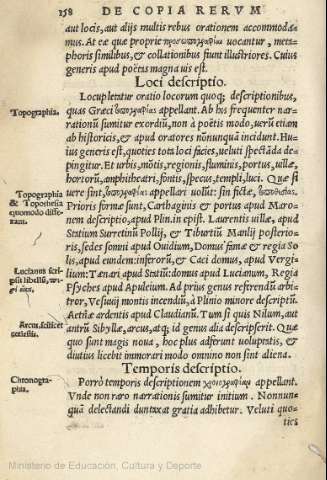 158 DE COPIA RERVM
aut locis, aut alijs multis rebus orationem accommodamus.
At eæ quæ propriè προσωπογραφίαι uocantur, metaphoris
similibus, & collationibus fiunt illustriores. Cuius
generis apud poëtas magna uis est.
Loci descriptio.
Locupletatur oratio locorum quoq; descriptionibus,
Topographia.
quas Græci τοπογραφίας appellant. Ab his frequenter narrationũ
sumitur exordiũ, non à poëtis modo, uerũ etiam
ab historicis, & apud oratores nõnunquã incidunt. Huius
generis est, quoties tota loci facies, ueluti spectãda depingitur.
Et urbis, mõtis, regionis, fluminis, portus, uillæ,
hortorũ, amphitheatri, fontis, specus, templi, luci. Quæ si
Topographia
& Topothesia
quomodo differant.
uere sunt, τοπογραφίας appellari uolũt: sin fictæ, τοποθεσίας.
Prioris formæ sunt, Carthaginis & portus apud Maronem
descriptio, apud Plin. in epist. Laurentis uillæ, apud
Statium Surretinũ Pollij, & Tiburtiũ Manlij posterioris,
sedes somni apud Ouidium, Domus famæ & regia Solis,
apud eundem: inferorũ, & Caci domus, apud Vergilium:
Tænari apud Statiũ: domus apud Lucianum, Regia
Psyches apud Apuleium. Ad prius genus referendũ arbitror,
Vesuuij montis incendiũ, à Plinio minore descriptũ.
Aethnæ ardentis apud Claudianũ. Tum si quis Nilum, aut
antrũ Sibyllæ, arcus, atq; id genus alia descripserit. Quæ
quo sunt magis noua, hoc plus adferunt uoluptatis, &
diutius licebit immorari modo omnino non sint aliena.
Temporis descriptio.
Chronographia.
Porrò temporis descriptionem χρονογραφίαν appellant.
Vnde non raro narrationis sumitur initium. Nonnunquã
delectandi duntaxat gratia adhibetur. Veluti quoties
Ministerio de Educación, Cultura y Deporte